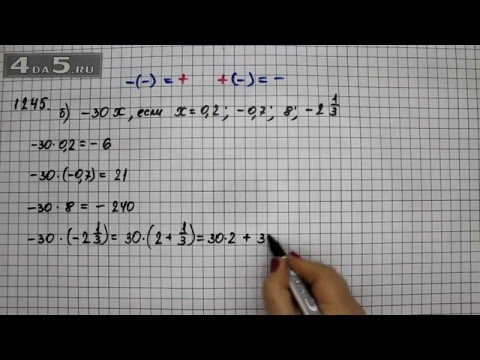 4DA5.RU
-(-) = +    +(-) = -
1245. б) -30x, если x = 0,2; -0,7; 8; -2 1/3
-30·0,2 = -6
-30·(-0,7) = 21
-30·8 = -240
-30·(-2 1/3) = 30·(2 + 1/3) = 30·2 + 3